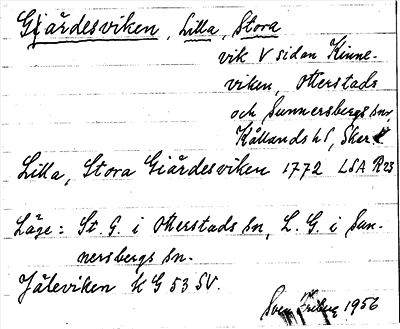 Gjärdesviken, Lilla, Stora
vik V sidan Kinne-
viken, Otterstads
och Sunnersbergs snr,
Kållands hd, Skar
Lilla, Stora Giärdesviken 1772 LSA R23
Läge: St. G. i Otterstads sn, L. G. i Sun-
nersbergs sn.
Jäleviken KG 53 SV.
Sven 1956